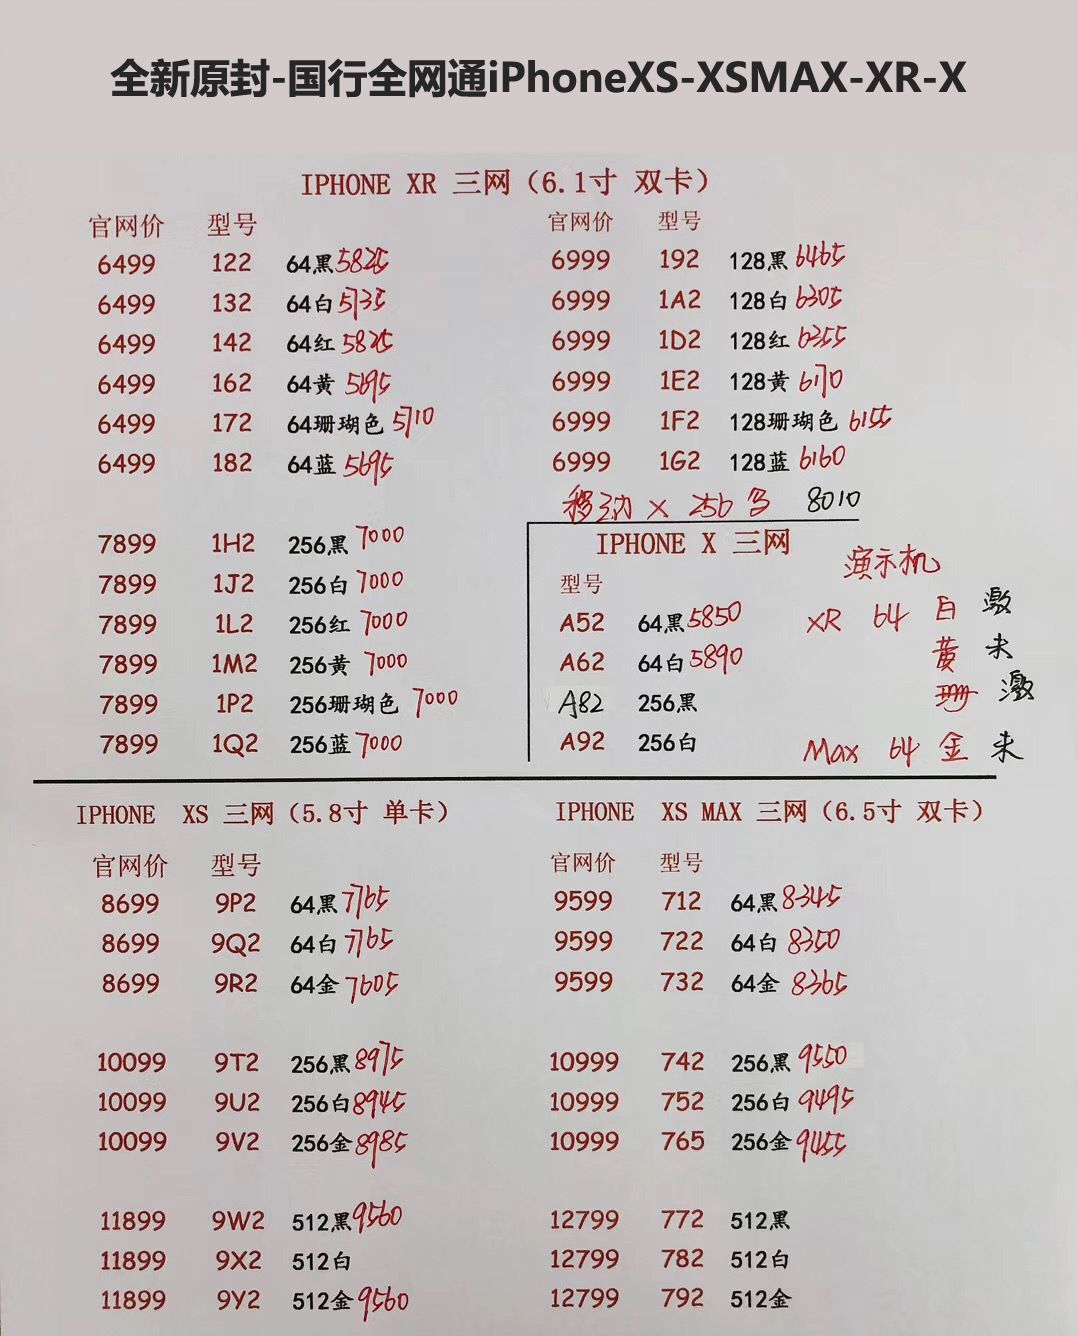 全新原封-国行全网通iPhoneXS-XSMAX-XR-X
IPHONE XR 三网（6.1寸 双卡）
官网价 型号
6499 122 64黑 5825
6499 132 64白 5735
6499 142 64红 5825
6499 162 64黄 5695
6499 172 64珊瑚色 5710
6499 182 64蓝 5695
7899 1H2 256黑 7000
7899 1J2 256白 7000
7899 1L2 256红 7000
7899 1M2 256黄 7000
7899 1P2 256珊瑚色 7000
7899 1Q2 256蓝 7000
官网价 型号
6999 192 128黑 6465
6999 1A2 128白 6305
6999 1D2 128红 6355
6999 1E2 128黄 6170
6999 1F2 128珊瑚色 6155
6999 1G2 128蓝 6160
移动 X 256 8010
IPHONE X 三网
型号
A52 64黑 5850
A62 64白 5890
A82 256黑
A92 256白
演示机
XR 64 白 激
黄 未
珊 激
Max 64 金 未
IPHONE XS 三网（5.8寸 单卡）
官网价 型号
8699 9P2 64黑 7765
8699 9Q2 64白 7765
8699 9R2 64金 7605
10099 9T2 256黑 8975
10099 9U2 256白 8945
10099 9V2 256金 8985
11899 9W2 512黑 9560
11899 9X2 512白
11899 9Y2 512金 9560
IPHONE XS MAX 三网（6.5寸 双卡）
官网价 型号
9599 712 64黑 8345
9599 722 64白 8350
9599 732 64金 8365
10999 742 256黑 9550
10999 752 256白 9495
10999 765 256金 9455
12799 772 512黑
12799 782 512白
12799 792 512金